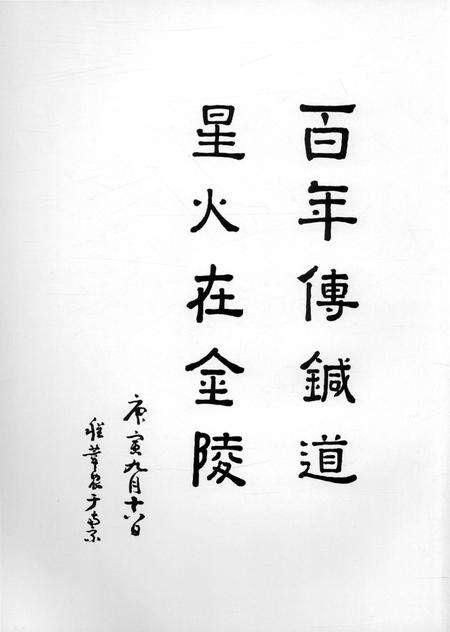 百年傳鍼道
星火在金陵
庚寅九月十八日
程莘农于南京